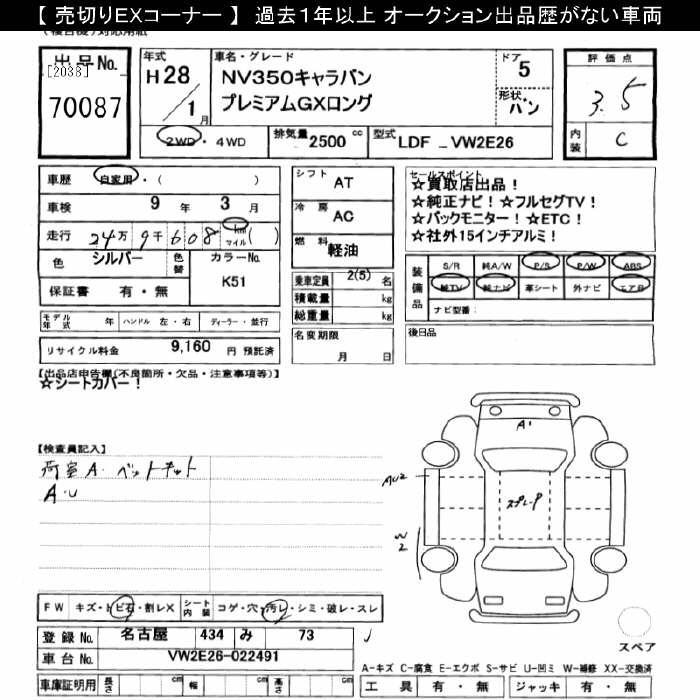 【 売切りEXコーナー 】 過去1年以上 オークション出品歴がない車両
出品No.
[2038]
70087
年式
H28
1月
車名・グレード
NV350キャラバン
プレミアムGXロング
ドア
5
形状
バン
評価点
3.5
内装
C
2WD・4WD
排気量
2500 cc
型式
LDF _VW2E26
車歴 自家用・( )
車検 9年 3月
走行 24万 9千 608 km マイル ( )
色 シルバー 色替 カラーNo. K51
保証書 有・無
シフト AT
冷房 AC
燃料 軽油
乗車定員 2(5) 名
積載量 kg
総重量 kg
名変期限
月 日
セールスポイント
☆買取店出品！
☆純正ナビ！☆フルセグTV！
☆バックモニター！☆ETC！
☆社外15インチアルミ！
装備品
S/R 純A/W P/S P/W ABS
純TV 純ナビ 革シート 外ナビ エアB
ナビ型番：
後日品
モデル年式 年 ハンドル 左・右 ディーラー・並行
リサイクル料金 9,160 円 預託済
【出品店申告欄(不良箇所・欠品・注意事項等)】
☆シートカバー！
【検査員記入】
荷室A・ベットキット
A・U
A1
AU2
W2
スプレーP
スペア
FW キズ・トビ石・割レX シート内装 コゲ・穴・汚レ・シミ・破レ・スレ
登録No. 名古屋 434 み 73
車台No. VW2E26-022491
車庫証明用 長さ cm 幅 cm 高さ cm
A-キズ C-腐食 E-エクボ S-サビ U-凹ミ W-補修 XX-交換済
工具 有・無 ジャッキ 有・無